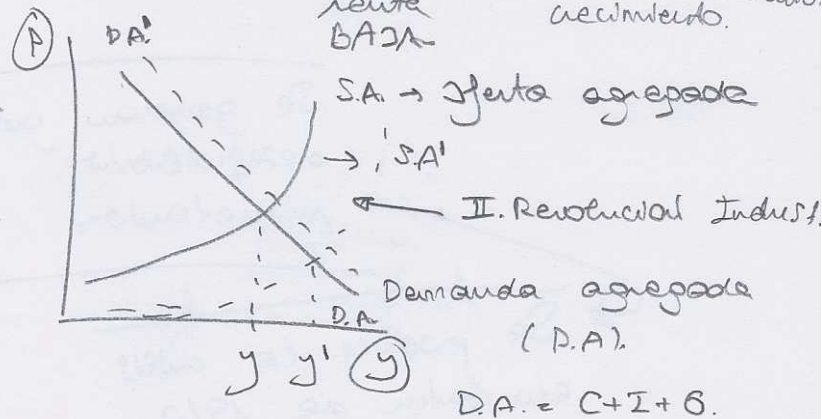 renta crecimiento.
BAJA
P D.A'
S.A. → Oferta agregada
→ S.A'
II. Revolucial Indust.
Demanda agregada
D.A. (D.A).
y y' y
D.A. = C+I+G.